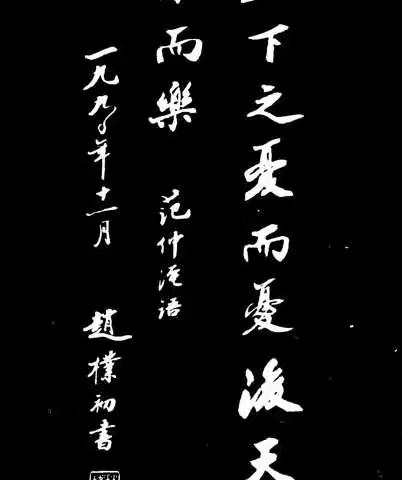 下之憂而憂後天
而樂 范仲淹語
一九九〇年十一月 趙樸初書